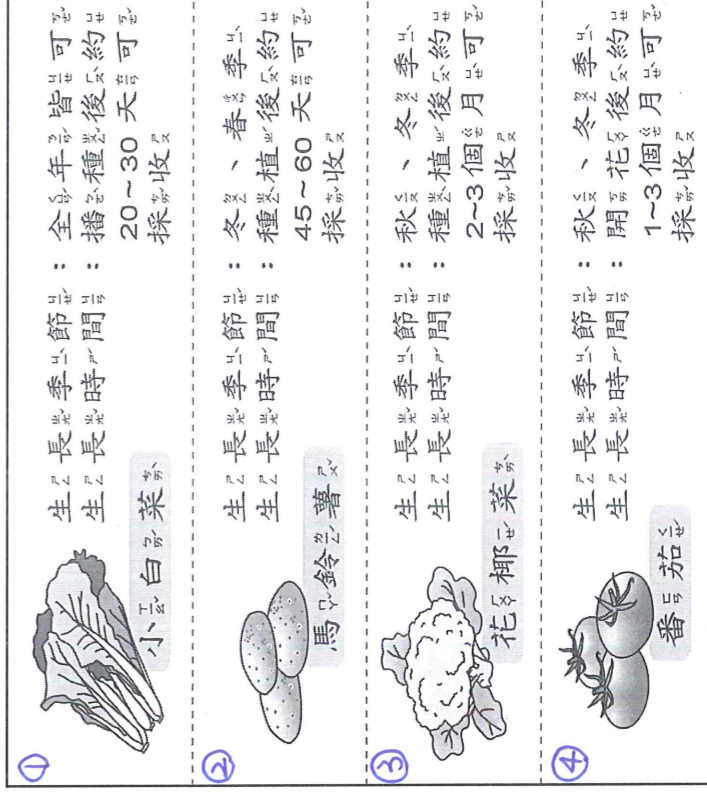 ①
生長季節：全年皆可
生長時間：播種後約
20~30天可
採收
小白菜
②
生長季節：冬、春季
生長時間：種植後約
45~60天可
採收
馬鈴薯
③
生長季節：秋、冬季
生長時間：種植後約
2~3個月可
採收
花椰菜
④
生長季節：秋、冬季
生長時間：開花後約
1~3個月可
採收
番茄